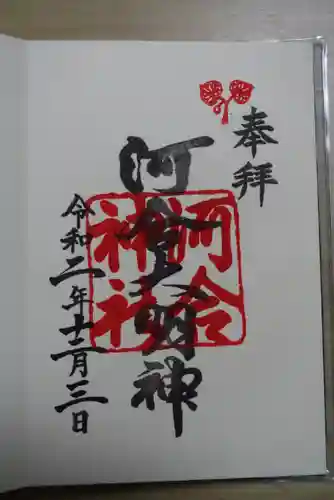 奉拝
河合大明神
河合
神社
令和二年十二月三日